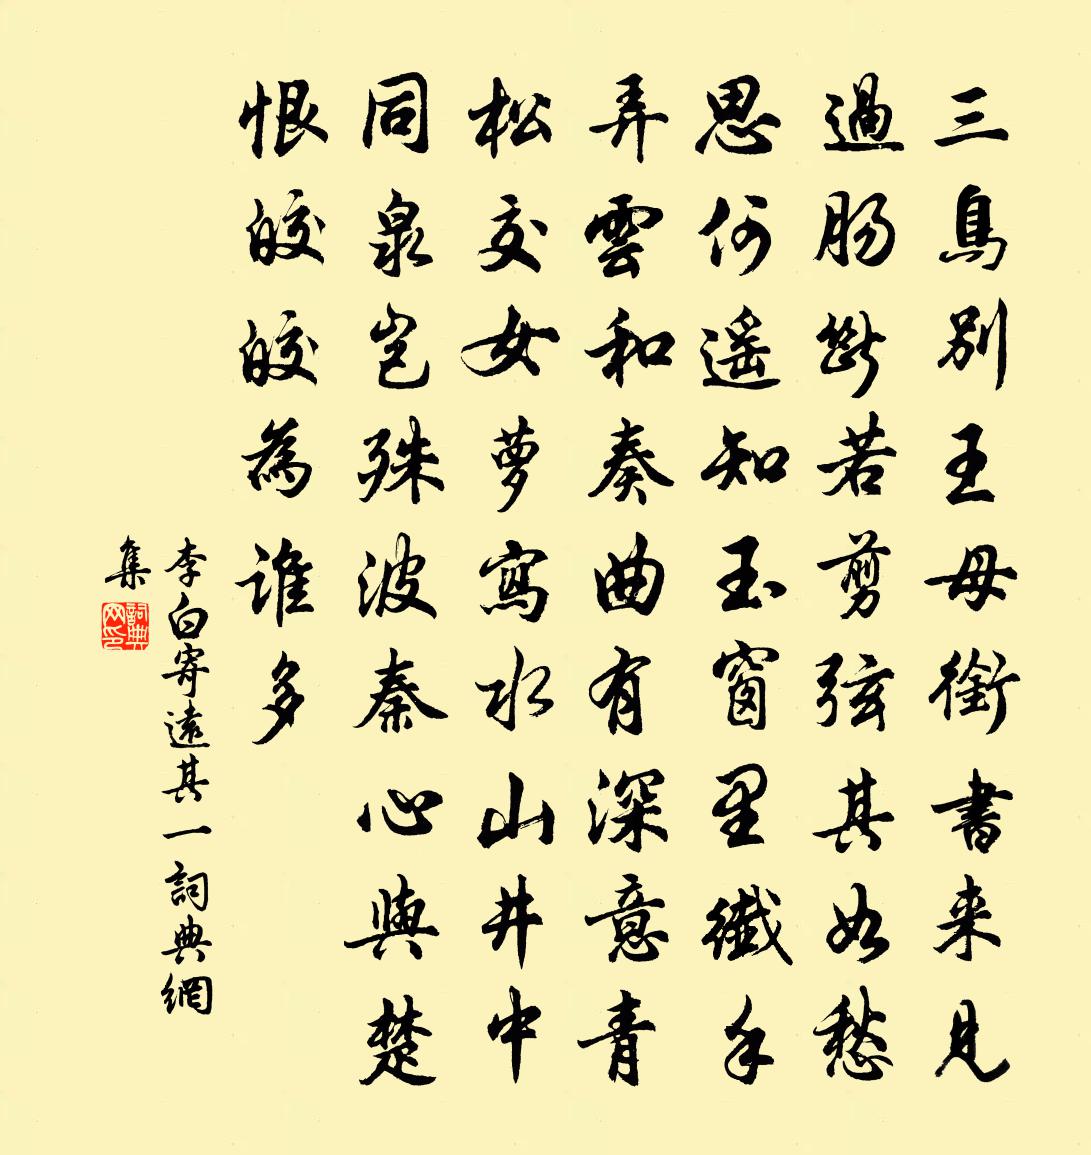 三鳥別王母銜書来見
過肠斷若剪弦其如愁
思何遥知玉窗里纖手
弄雲和奏曲有深意青
松交女萝寫水山井中
同泉岂殊波秦心與楚
恨皎皎為誰多
李白寄遠其一詞典網
集
詞典
网印